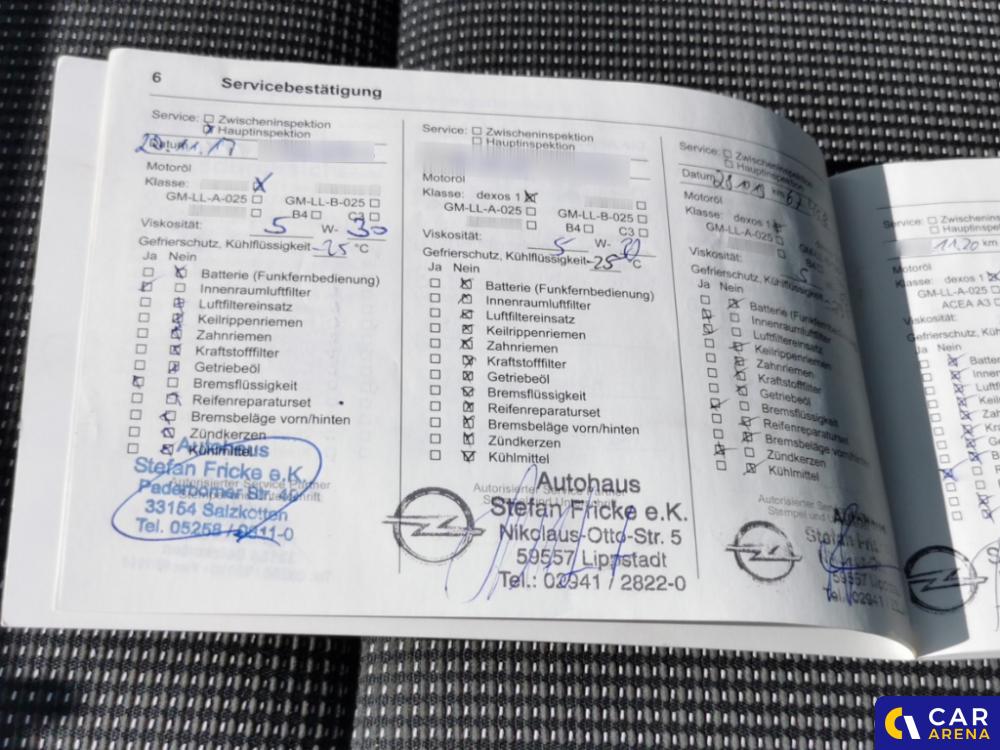 6 Servicebestätigung
Service: Zwischeninspektion
Hauptinspektion
Datum 20.11.17
Motoröl
Klasse:
GM-LL-A-025 GM-LL-B-025
B4 C3
Viskosität: 5 W- 30
Gefrierschutz, Kühlflüssigkeit -25 °C
Ja Nein
Batterie (Funkfernbedienung)
Innenraumluftfilter
Luftfiltereinsatz
Keilrippenriemen
Zahnriemen
Kraftstofffilter
Getriebeöl
Bremsflüssigkeit
Reifenreparaturset
Bremsbeläge vorn/hinten
Zündkerzen
Kühlmittel
Autorisierter Service Partner
Autohaus
Stefan Fricke e.K.
Paderborner Str.
33154 Salzkotten
Tel. 05258 /
Service: Zwischeninspektion
Hauptinspektion
Motoröl
Klasse: dexos 1
GM-LL-A-025 GM-LL-B-025
B4 C3
Viskosität: 5 W-
Gefrierschutz, Kühlflüssigkeit -25 °C
Ja Nein
Batterie (Funkfernbedienung)
Innenraumluftfilter
Luftfiltereinsatz
Keilrippenriemen
Zahnriemen
Kraftstofffilter
Getriebeöl
Bremsflüssigkeit
Reifenreparaturset
Bremsbeläge vorn/hinten
Zündkerzen
Kühlmittel
Autorisierter Service Partner
Autohaus
Stefan Fricke e.K.
Nikolaus-Otto-Str. 5
59557 Lippstadt
Tel.: 02941 / 2822-0
Service: Zwischeninspektion
Hauptinspektion
Datum km
Motoröl
Klasse: dexos 1
GM-LL-A-025
Viskosität: 5
Gefrierschutz, Kühlflüssigkeit
Ja Nein
Batterie
Innenraumluftfilter
Luftfiltereinsatz
Keilrippenriemen
Zahnriemen
Kraftstofffilter
Getriebeöl
Bremsflüssigkeit
Reifenreparaturset
Bremsbeläge vorn/hinten
Zündkerzen
Kühlmittel
Autorisierter Service
Stempel und
59557 Lip
Tel.: 02941
Service: Zwischeninspektion
11.20 km
Motoröl
Klasse: dexos 1
GM-LL-A-025
ACEA A3
Viskosität:
Gefrierschutz,
Ja Nein
CAR
ARENA